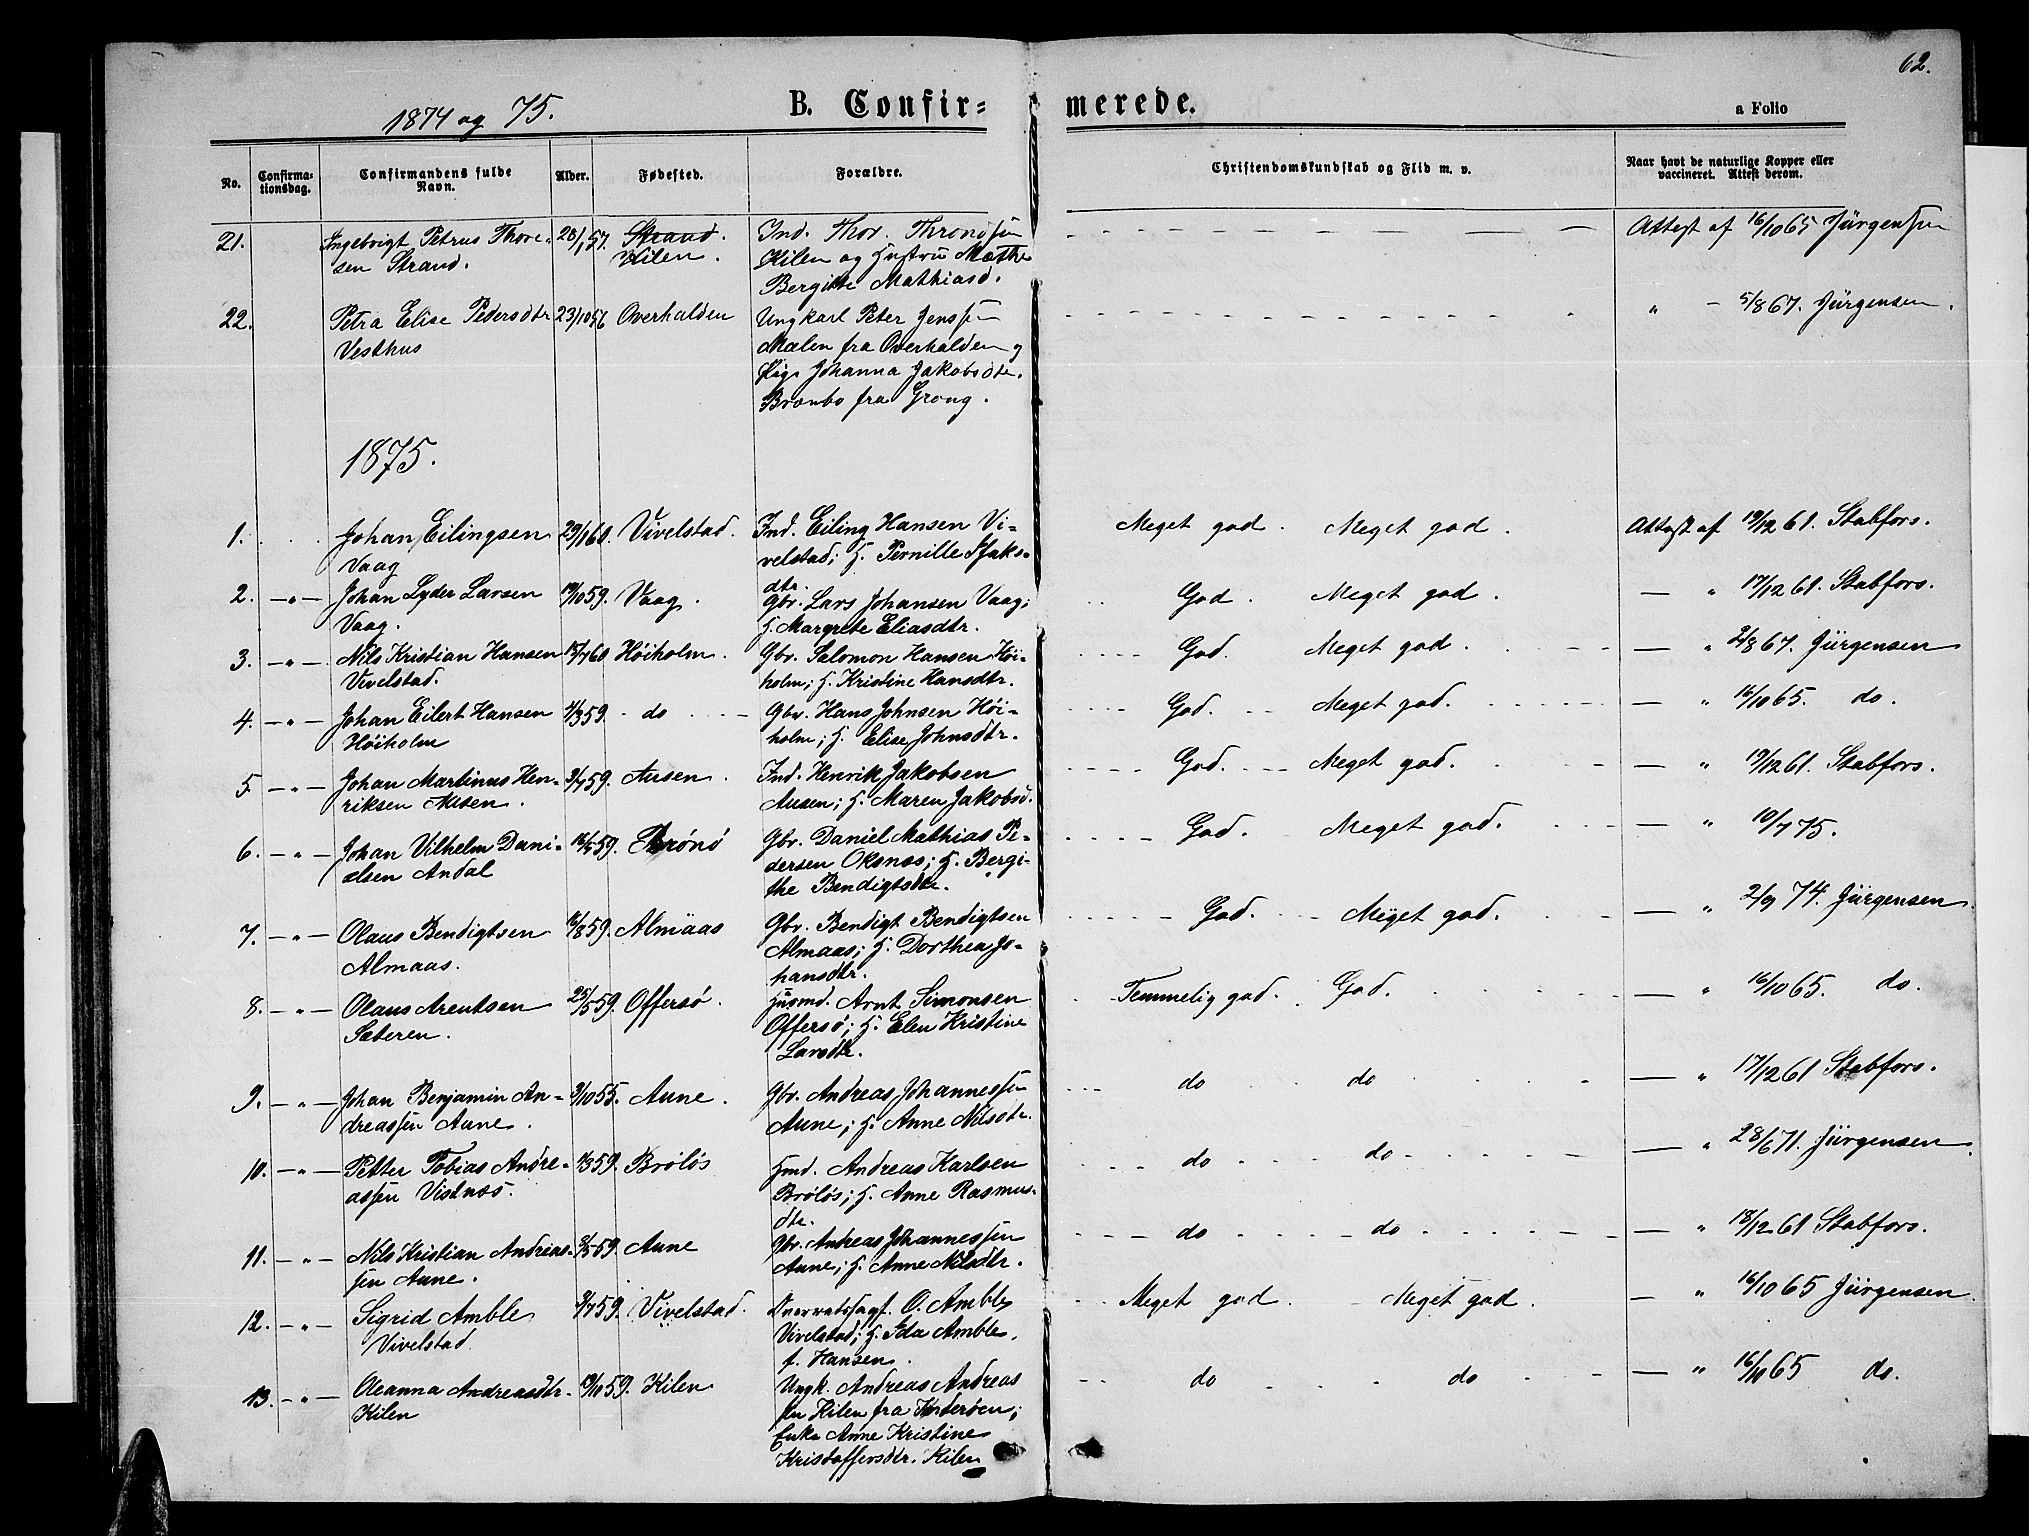 62.
1874 og 75.
B. Confir=
merede.
a Folio
No.
Confirma-
tionsdag.
Confirmandens fulde
Navn.
Alder.
Fødested.
Forældre.
Christendomskundskab og Flid m. v.
Naar havt de naturlige Kopper eller
vaccineret. Attest derom.
21. Ingebrigt Petrus Thore- 28/1 57. Strand. Ind. Thor. Thronssen Attest af 16/10 65 Jürgensen
sen Strand. Kilen. Kilen og Hustru Mæthe
Bergitte Mathiasd.
22. Petra Elise Pedersdtr 23/10 56 Overhalden Ungkarl Peter Jenssen " - 5/8 67. Jürgensen.
Vesthus Mælen fra Overhalden og
Pige Johanna Jakobsdtr.
Brænbo fra Grong.
1875.
1. Johan Eilingsen 29/1 60. Vivelstad. Ind. Eiling Hansen Vi- Meget god. Meget god. Attest af 19/12 61. Stabfors.
Vaag velstad; H. Pernille Isaks-
dtr
2. -"- Johan Lyder Larsen 19/10 59. Vaag. Gbr. Lars Johansen Vaag; God. Meget god. — " 17/12 61. Stabfors.
Vaag. H. Margrete Eliasdtr.
3. -"- Nils Kristian Hansen 15/7 60 Höiholm. Gbr. Salomon Hansen Höi- God. Meget god. — " 2/8 67. Jürgensen
Vivelstad. holm; H. Kristine Hansdtr.
4. -"- Johan Eilert Hansen 4/9 59. do Gbr. Hans Johnsen Höi- God. Meget god. — " 16/10 65. do.
Höiholm holm; H. Elise Johnsdtr.
5. -"- Johan Martinus Hen- 3/7 59. Ausen. Ind. Henrik Jakobsen God. Meget god. — " 19/12 61. Stabfors.
riksen Ausen. Ausen; H. Maren Jakobsd.
6. -"- Johan Vilhelm Dani- 16/5 59. Brönö Gbr. Daniel Mathias Pe- God. Meget god. — " 10/7 75.
elsen Andal dersen Oksnæs; H. Bergi-
the Bendigtsdtr.
7. -"- Olaus Bendigtsen 6/8 59. Almaas Gbr. Bendigt Bendigtsen God. Meget god. — " 2/9 74. Jürgensen
Almaas. Almaas; H. Dorthea Jo-
hansdtr.
8. -"- Olaus Arentsen 25/5 59. Offersö. Husmd. Arnt Simonsen Temmelig god. God. — " 16/10 65. do.
Sæteren. Offersö; H. Elen Kristine
Larsdtr.
9. -"- Johan Benjamin An- 3/10 55. Aune. Gbr. Andreas Johannessen do do — " 17/12 61 Stabfors.
dreassen Aune. Aune; H. Anne Nilsdtr.
10. -"- Petter Tobias Andre- 1/3 59. Brölös Hmd. Andreas Karlsen do do — " 28/6 71. Jürgensen
assen Vistnæs. Brölös; H. Anne Rasmus-
dtr.
11. -"- Nils Kristian Andreas- 2/5 59. Aune Gbr. Andreas Johannessen do do — " 18/12 61 Stabfors.
sen Aune. Aune; H. Anne Nilsdtr.
12. -"- Sigrid Amble 3/7 59. Vivelstad. O. Amble Meget god. Meget god. — " 16/10 65 Jürgensen
Vivelstad Vivelstad; H. Ida Amble,
f. Hansen.
13. -"- Oleanna Andreasdtr. 19/10 59. Kilen Ungk. Andreas Andreas do do — " 16/10 65 do.
Kilen sen Kilen fra Inderöen;
Enke Anne Kristine
Kristoffersdtr. Kilen